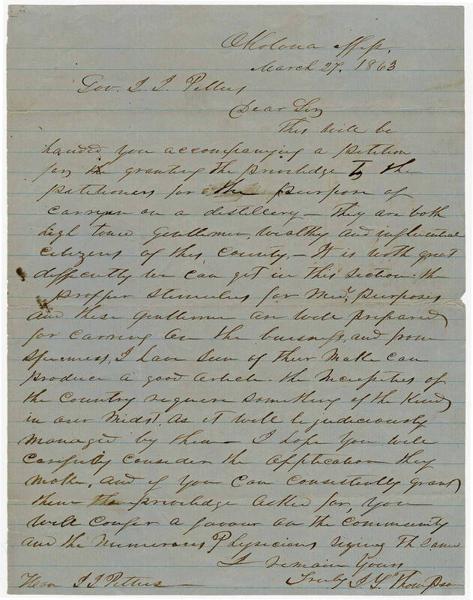 Okolona Miss.
March 27. 1863
Gov. J. J. Pettus
Dear Sir
This will be
handed you accompanying a petition
for the granting the priviledge to the
petitioners for the purpose of
carrying on a distillery — They are both
high toned gentlemen, wealthy and influential
citizens of this county, — It is with great
difficulty we can get in this section the
proper stimulus for Med. purposes
and these gentlemen are well prepared
for carring on the business, and from
specimens, I have seen of their make can
produce a good article. the necessities of
the country require something of the kind
in our midst. As it will be judiciously
managed by them — I hope you will
carefully consider the application they
make, and if you can consistently grant
them the priviledge asked for, you
will confer a favour on the community
and the numerous Physicians signing the same
I remain yours
Hon J J Pettus — Truly J. Y. Thompson